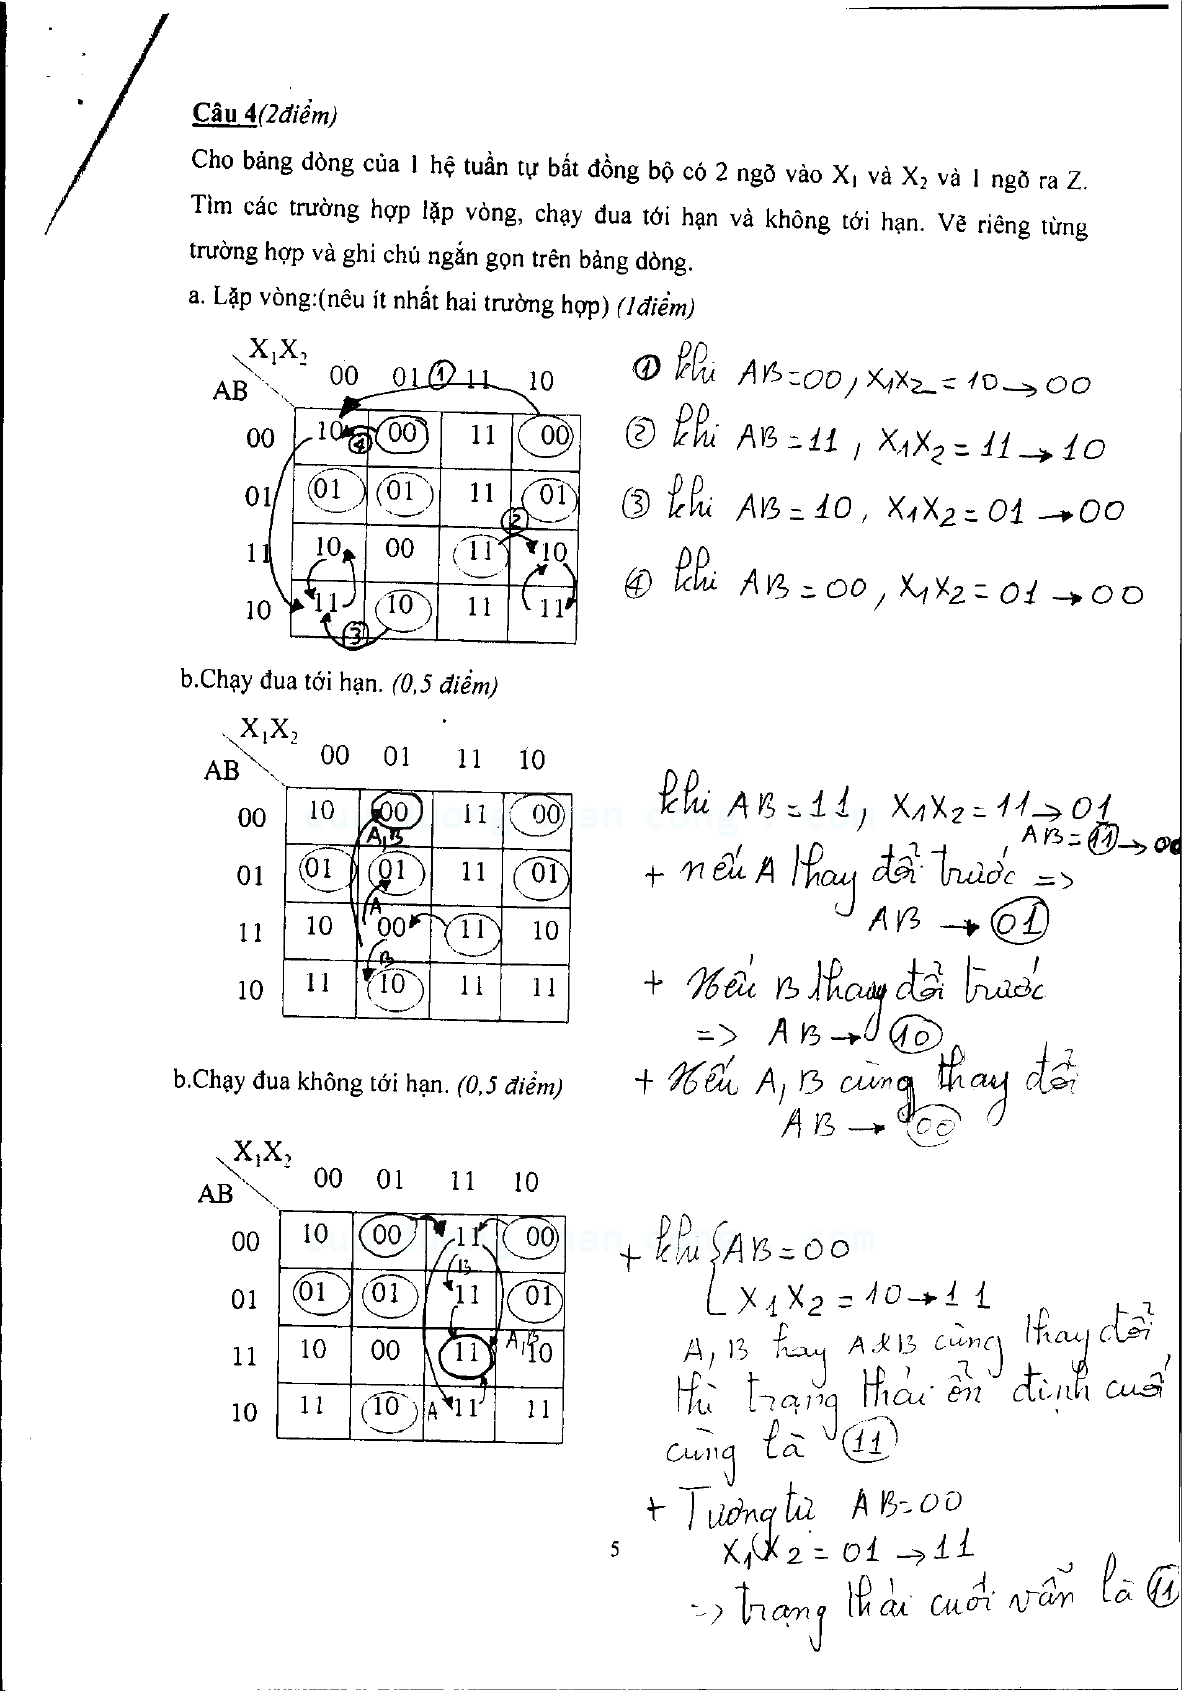 Câu 4(2điểm)
Cho bảng dòng của 1 hệ tuần tự bất đồng bộ có 2 ngõ vào X1 và X2 và 1 ngõ ra Z.
Tìm các trường hợp lặp vòng, chạy đua tới hạn và không tới hạn. Vẽ riêng từng
trường hợp và ghi chú ngắn gọn trên bảng dòng.
a. Lặp vòng:(nêu ít nhất hai trường hợp) (1điểm)
X1X2
AB
00 01 ① 11 10
00 10 ④ 00 11 00
01 01 01 11 01
②
11 10 00 11 10
10 11 10 11 11
③
① khi AB=00, X1X2=10→00
② khi AB=11, X1X2=11→10
③ khi AB=10, X1X2=01→00
④ khi AB=00, X1X2=01→00
b.Chạy đua tới hạn. (0,5 điểm)
X1X2
AB
00 01 11 10
00 10 00 11 00
A,B
01 01 01 11 01
A
11 10 00 11 10
B
10 11 10 11 11
khi AB=11, X1X2=11→01
, AB=11→00
+ nếu A thay đổi trước =>
AB → 01
+ Nếu B thay đổi trước
=> AB → 10
+ Nếu A, B cùng thay đổi
AB → 00
b.Chạy đua không tới hạn. (0,5 điểm)
X1X2
AB
00 01 11 10
00 10 00 11 00
B
01 01 01 11 01
A,B
11 10 00 11 10
10 11 10 A 11 11
+ khi { AB=00
X1X2=10→11
A, B hay A&B cùng thay đổi
thì trạng thái ổn định cuối
cùng là 11
+ Tương tự AB=00
X1X2=01→11
=> trạng thái cuối vẫn là 11
5